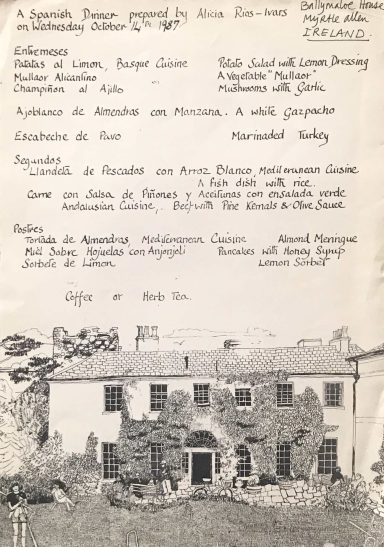 A Spanish Dinner prepared by Alicia Rios-Ivars
on Wednesday October 14th 1987
Ballymaloe House
Myrtle Allen
IRELAND.
Entremeses
Patatas al Limon, Basque Cuisine Potato Salad with Lemon Dressing
Mullaor Alicantino A Vegetable "Mullaor"
Champiñon al Ajillo Mushrooms with Garlic
Ajoblanco de Almendras con Manzana. A white Gazpacho
Escabeche de Pavo Marinaded Turkey
Segundos
Llandeta de Pescados con Arroz Blanco, Mediterunean Cuisine
A fish dish with rice.
Carne con Salsa de Piñones y Aceitunas con ensalada verde
Andalusian Cuisine,. Beef with Pine Kernals & Olive Sauce
Postres
Tortada de Almendras, Mediterranean Cuisine Almond Meringue
Miel Sobre Hojuelas con Anjonjoli Pancakes with Honey Syrup
Sorbete de Limon Lemon Sorbet
Coffee or Herb Tea.